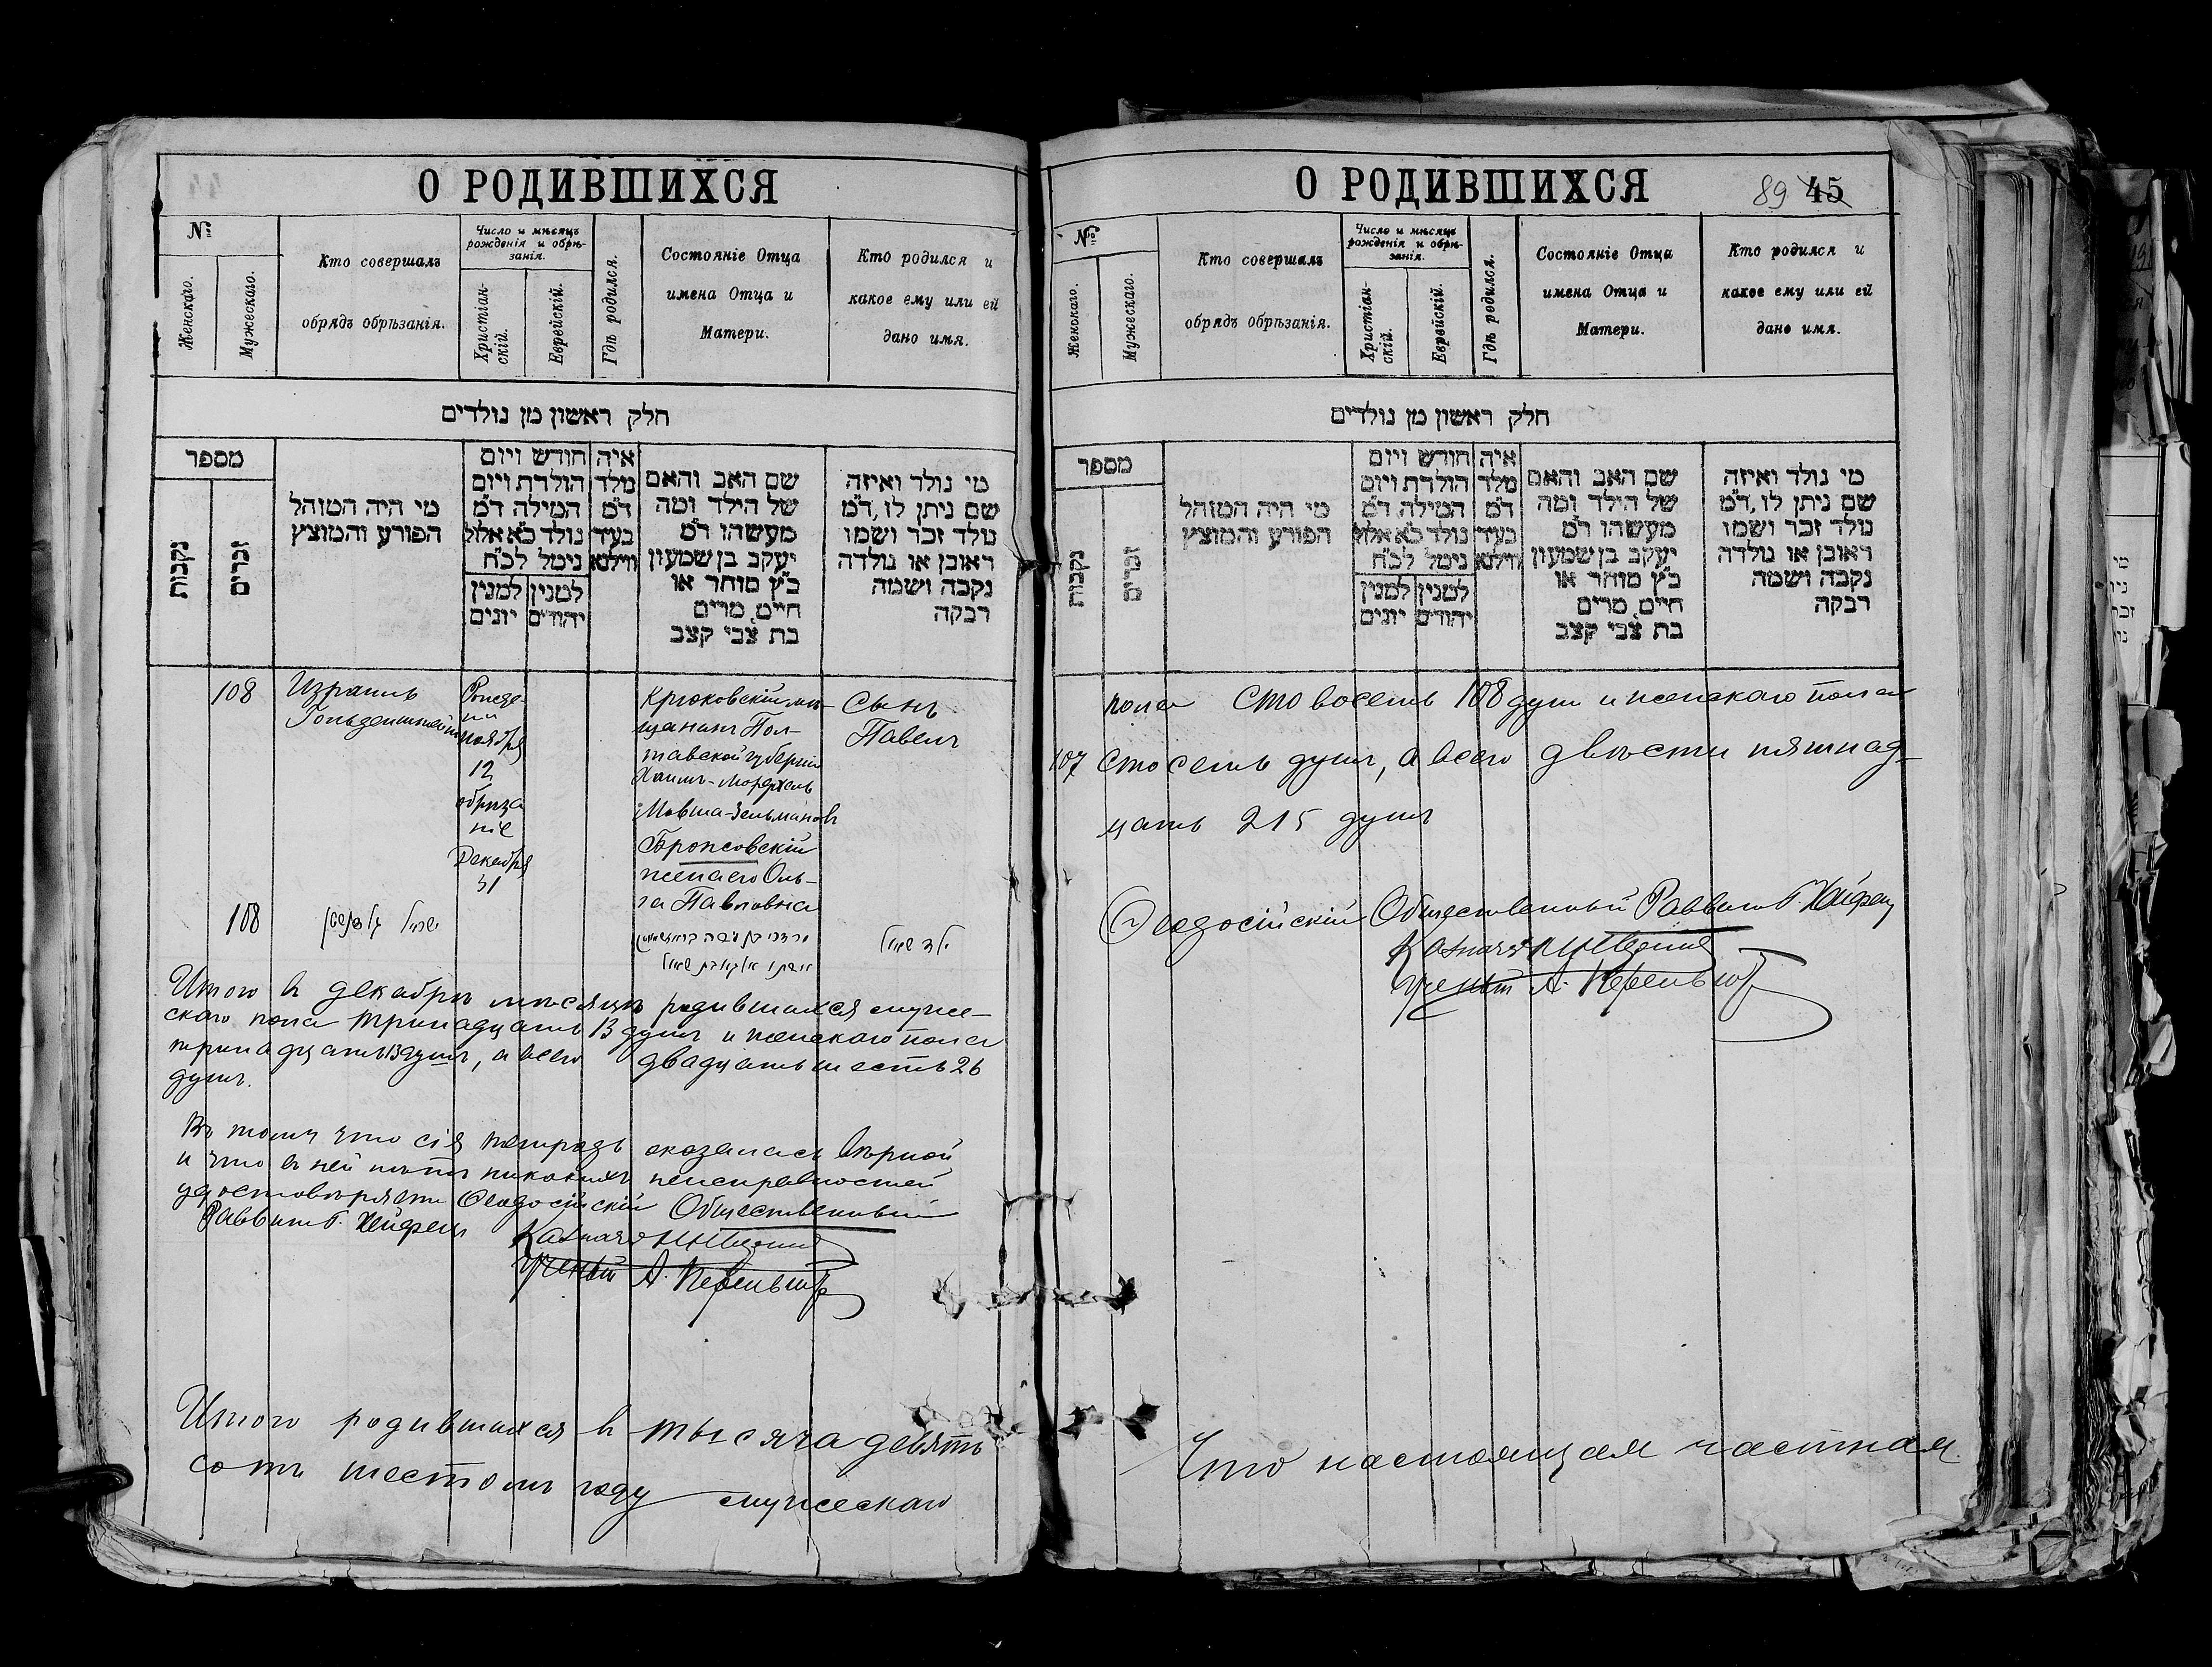 О РОДИВШИХСЯ
№
Женскаго.
Мужескаго.
Кто совершалъ
обрядъ обрѣзанія.
Число и мѣсяцъ
рожденія и обрѣ-
занія.
Христіан-
скій.
Еврейскій.
Гдѣ родился.
Состояніе Отца
имена Отца и
Матери.
Кто родился и
какое ему или ей
дано имя.
חלק ראשון מן נולדים
מספר
נקבות
זכרים
מי היה המוהל
הפורע והמוצץ
חודש ויום
הולדת ויום
המילה ד"מ
נולד כ"א אלול
ניטול לכ"ח
למנין
יהודים
למנין
יונים
איה
מלד
ד"מ
בעיר
ווילנא
שם האב והאם
של הילד ומה
מעשהו ד"מ
יעקב בן שמעון
כ"ץ סוחר או
חיים, מרים
בת צבי קצב
מי נולד ואיזה
שם ניתן לו, ד"מ
נולד זכר ושמו
ראובן או נולדה
נקבה ושמה
רבקה
108
Израиль
Рожде-
ніе
ноября
12
обрѣза
ніе
Декабря
31
Крюковскій мѣ-
щанинъ Пол-
тавской губерніи
Хаимъ-Мордхель
Мовша-Зельмановъ
женаего Оль-
га Павловна
Сынъ
Павелъ
108
ישראל
ילד שאול
Итого въ декабрѣ мѣсяцѣ родившихся муже-
скаго пола тринадцать 13 душъ и женскаго пола
тринадцать 13 душъ, а всего двадцать шесть 26
душъ.
Въ томъ что сія тетрадь оказалась вѣрной
и что въ ней нѣтъ никакихъ неисправностей
удостовѣряетъ Ѳеодосійскій Общественный
Раввинъ Г. Хейфецъ
Казначей
Ученый А.
Итого родившихся въ тысяча девять
сотъ шестомъ году мужескаго
О РОДИВШИХСЯ
89 45
№
Женскаго.
Мужескаго.
Кто совершалъ
обрядъ обрѣзанія.
Число и мѣсяцъ
рожденія и обрѣ-
занія.
Христіан-
скій.
Еврейскій.
Гдѣ родился.
Состояніе Отца
имена Отца и
Матери.
Кто родился и
какое ему или ей
дано имя.
חלק ראשון מן נולדים
מספר
נקבות
זכרים
מי היה המוהל
הפורע והמוצץ
חודש ויום
הולדת ויום
המילה ד"מ
נולד כ"א אלול
ניטול לכ"ח
למנין
יהודים
למנין
יונים
איה
מלד
ד"מ
בעיר
ווילנא
שם האב והאם
של הילד ומה
מעשהו ד"מ
יעקב בן שמעון
כ"ץ סוחר או
חיים, מרים
בת צבי קצב
מי נולד ואיזה
שם ניתן לו, ד"מ
נולד זכר ושמו
ראובן או נולדה
נקבה ושמה
רבקה
пола сто восемь 108 душ и женскаго пола
107 сто семь душъ, а всего двѣсти пятнад-
цать 215 душъ
Ѳеодосійскій Общественный Раввинъ Г. Хейфецъ
Казначей
Ученый А.
Что настоящая частная